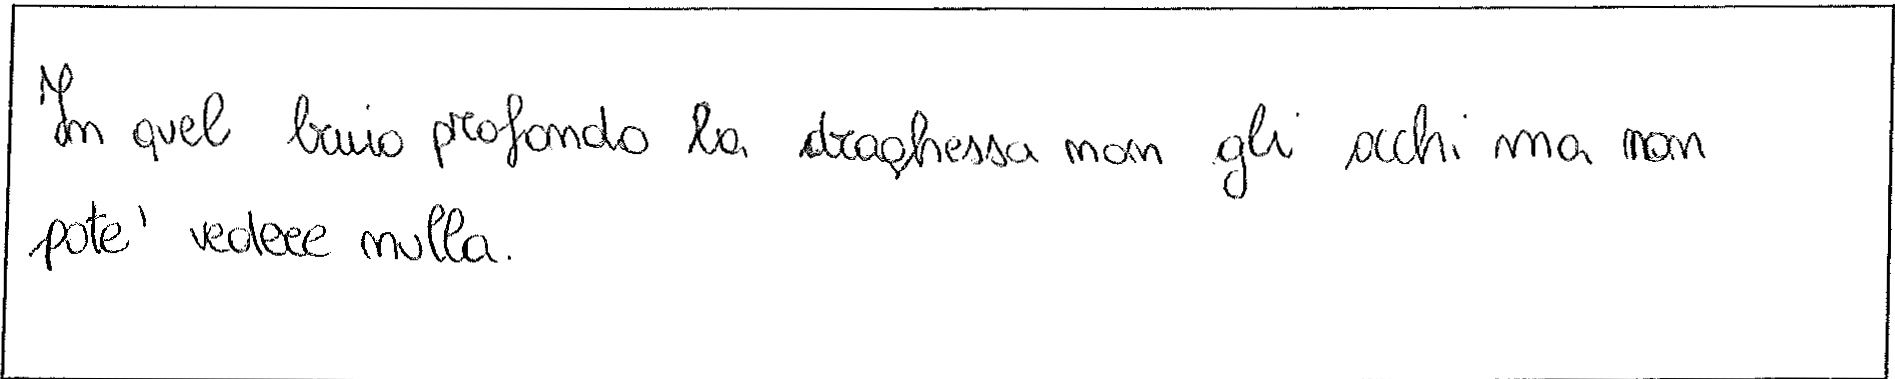 In quel buio profondo la draghessa non gli occhi ma non
pote' vedere nulla.